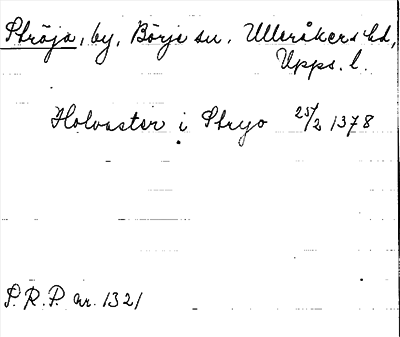 Ströja, by, Börje sn. Ulleråkers hd,
Upps. l.
Holvaster i Stryo 25/2 1378
S. R. P. nr. 1321